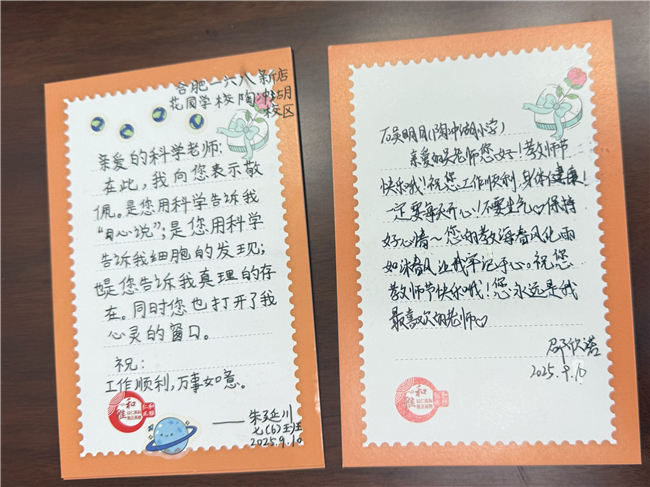 合肥一六八新店
花园学校陶冲湖
校区
亲爱的科学老师:
在此,我向您表示敬
佩。是您用科学告诉我
"日心说";是您用科学
告诉我细胞的发现;
也是您告诉我真理的存
在。同时您也打开了我
心灵的窗口。
祝:
工作顺利,万事如意。
——朱廷川
七(6)班
2025.9.10
吴明月(陶冲湖小学)
亲爱的吴老师您好!教师节
快乐哦!祝您工作顺利,身体健康!
一定要每天开心!不要生气♡保持
好心情~您的教诲春风化雨
如沐春风让我牢记于心。祝您
教师节快乐哦!您永远是我
最喜欢的老师♡
邵欣诺
2025.9.10